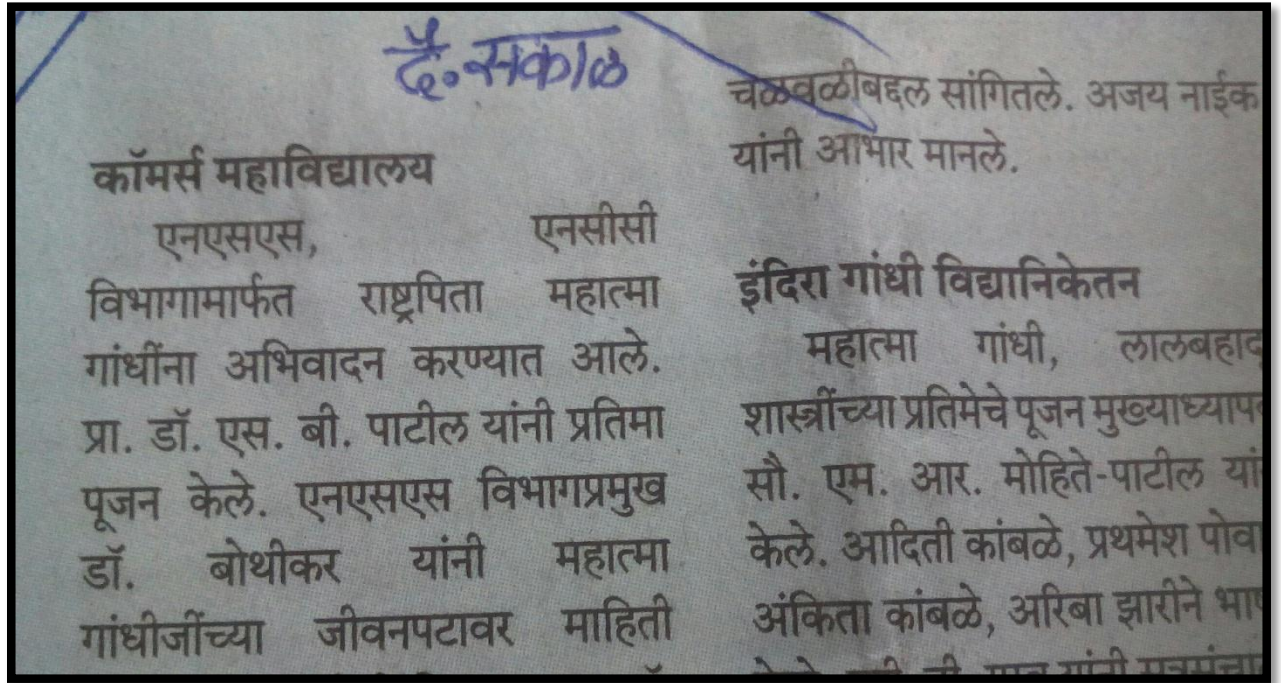 दै. सकाळ
कॉमर्स महाविद्यालय
एनएसएस, एनसीसी
विभागामार्फत राष्ट्रपिता महात्मा
गांधींना अभिवादन करण्यात आले.
प्रा. डॉ. एस. बी. पाटील यांनी प्रतिमा
पूजन केले. एनएसएस विभागप्रमुख
डॉ. बोथीकर यांनी महात्मा
गांधीजींच्या जीवनपटावर माहिती
चळवळीबद्दल सांगितले. अजय नाईक
यांनी आभार मानले.
इंदिरा गांधी विद्यानिकेतन
महात्मा गांधी,
शास्त्रींच्या प्रतिमेचे पूजन
सौ. एम. आर. मोहिते-पाटील
केले. आदिती कांबळे, प्रथमेश
अंकिता कांबळे, अरिबा झारीने